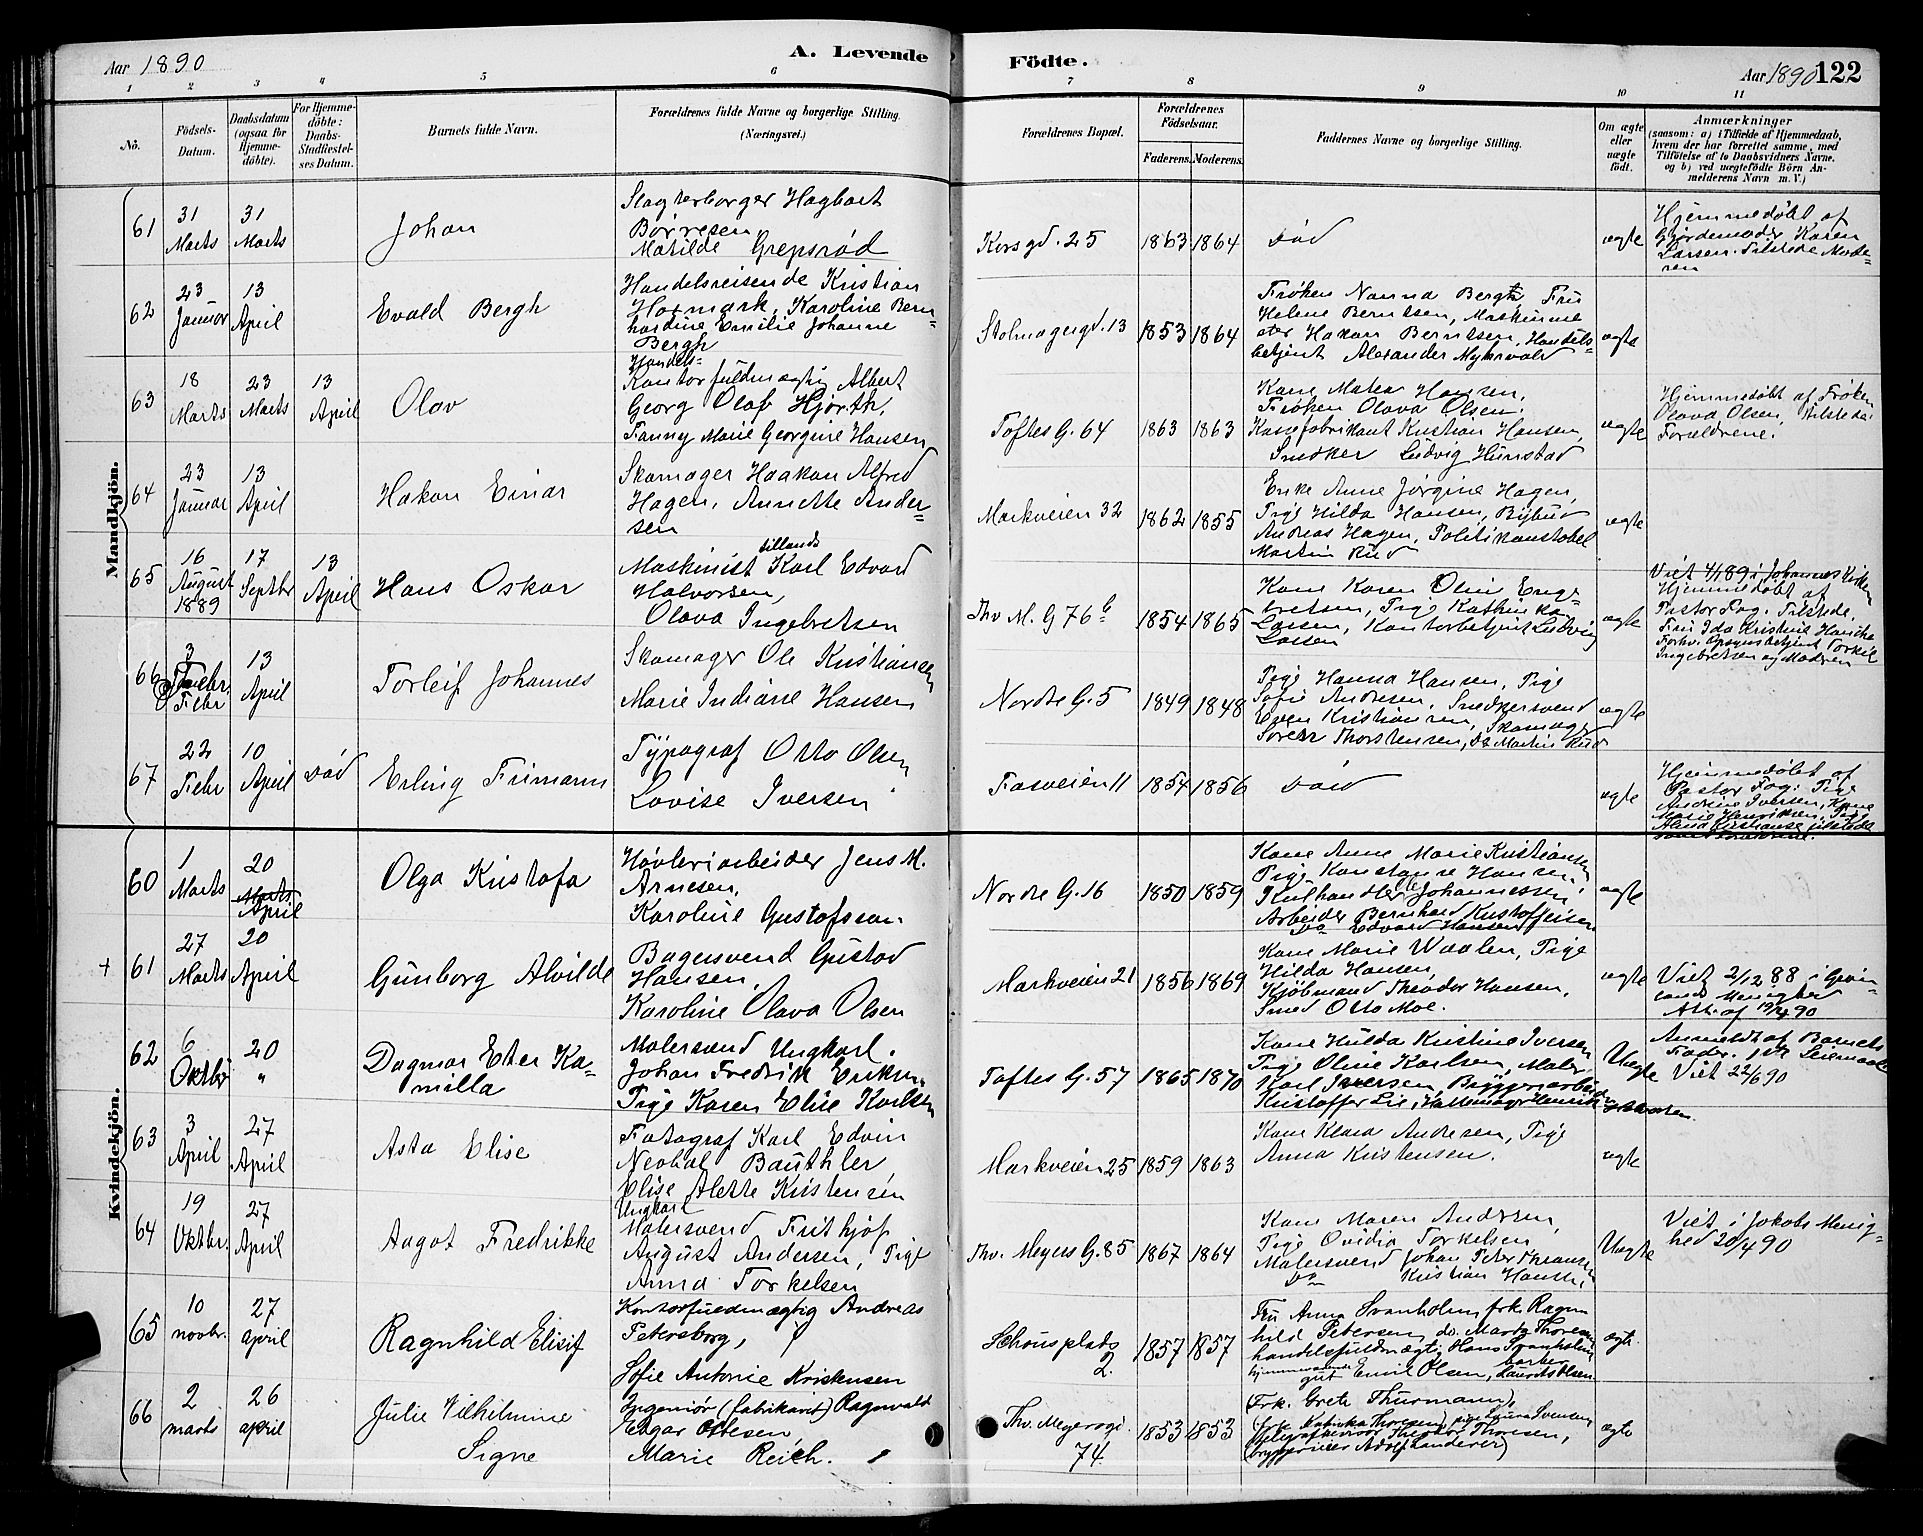 Aar 1890
A. Levende Födte.
Aar 1890 122
1 2 3 4 5 6 7 8 9 10 11
No.
Födsels-
Datum.
Daabsdatum
(ogsaa for
Hjemme-
döbte).
For Hjemme-
döbte:
Daabs-
Stadfæstel-
ses Datum.
Barnets fulde Navn.
Forældrenes fulde Navne og borgerlige Stilling.
(Næringsvei.)
Forældrenes Bopæl.
Forældrenes
Födselsaar.
Faderens. Moderens.
Faddernes Navne og borgerlige Stilling.
Om ægte
eller
uægte
født.
Anmærkninger
(saasom: a) i Tilfælde af Hjemmedaab,
hvem der har forrettet samme, med
Tilföielse af to Daabsvidners Navne,
og b) ved uægtefödte Börn An-
melderens Navn m. V.)
Mandkjön.
61
31
Marts
31
Marts
Johan
Slagterborger Hagbart
Börresen
Matilde Grepsrød
Korsgd. 25
1863 1864
Død
ægte
Hjemmedøbt af
Gjordemoder Karen
Larsen. Tilstede Mode-
ren
62
23
Januar
13
April
Evald Bergh
Handelsreisende Kristian
Hormark, Karoline Bern-
hardine Emilie Johanne
Bergh
Stolmagergd. 13
1853 1864
Frøken Nanna Bergh Fru
Helene Berntsen, Maskinme
ster Hakon Berntsen, Handels-
betjent Alexander Myhrvold
ægte
63
18
Marts
23
Marts
13
April
Olav
Handels-
Kontorfuldmægtig Albert
Georg Olaf Hjorth,
Fanny Marie Georgine Hansen
Toftes G. 64
1863 1863
Kone Matea Hansen,
Frøken Olava Olsen.
Kassefabrikant Kristian Hansen,
Snedker Ludvig Hunstad
ægte
Hjemmedøbt af Frøken
Olava Olsen, tilstede:
Forældrene.
64
23
Januar
13
April
Hakon Einar
Skomager Haakon Alfred
Hagen, Annette Ander-
sen
Markveien 32
1862 1855
Enke Anne Jørgine Hagen,
Pige Hilda Hansen, Bybud
Andreas Hagen, Politikonstabel
Martin Rud
ægte
65
16
August
1889
17
Septbr
13
April
Hans Oskar
tillands
Maskinist Karl Edvard
Halvorsen,
Olava Ingebretsen
Thv. M. G 76 b
1854 1865
Kone Karen Olin Enge-
bretsen, Pige Kathinka
Larsen, Kontorbetjent Ludvig
Larsen
ægte
Viet 4/1 89 i Johannes Kirken
Hjemmedøbt af
Pastor Fog. Tilstede,
Fru Ida Kristine Hansche
Forhv. Opsynsbetjent Torkil
Ingebretsen og Moderen
66
3
Febr
13
April
Torleif Johannes
Skomager Ole Kristiansen
Marie Indiane Hansen
Nordre G. 5
1849 1848
Pige Hanna Hansen, Pige
Sofie Andresen, Snedkersvend
Even Kristiansen, Skomager
Soren Thorstensen, do Martin Rud
ægte
67
22
Febr
10
April
Død
Erling Frimann
Typograf Otto Olsen
Lovise Iversen
Fosveien 11
1854 1856
Død
ægte
Hjemmedøbt af
Pastor Fog. Pige
Andrine Iversen, Kone
Marie Henriksen, Pige
Kvindekjön.
60
1
Marts
20
Marts
April
Olga Kristofa
Høvleriarbeider Jens M.
Arnesen,
Karoline Gustafsson.
Nordre G. 16
1850 1859
Kone Anne Marie Kristiansen
Pige Konstanse Hansen,
Kulhandler Johannessen
Arbeider Bernhard Kristoffersen
Do Edvard Hansen
ægte
+ 61
27
Marts
20
April
Gunborg Alvilde
Bagersvend Gustav
Hansen,
Karoline Olava Olsen
Markveien 21
1856 1869
Kone Marie Waalen, Pige
Hilda Hansen,
Kjøbmand Theodor Hansen,
Smed Otto Moe.
ægte
Viet 2/12 88 i Grøn-
lands Menighed
Att. af 19/4 90
62
6
Oktbr
20
"
Dagmar Ester Ka-
milla
Malersvend Ungkarl.
Johan Fredrik Eriksen
Pige Karen Elise Karlsen
Toftes G. 57
1865 1870
Kone Hulda Kristine Iversen
Pige Oline Karlsen, Maler
Karl Iversen, Bryggeriarbeider
Kristoffer Lie, Hattemager Henrik
Uægte
Anmeldt af Barnets
Fader. 1ste Leiermaal
Viet 22/6 90
63
3
April
27
April
Asta Elise
Fotograf Karl Edvin
Neobal Bauthler
Elise Alette Kristensen
Markveien 25
1859 1863
Kone Klara Andresen, Pige
Anna Kristensen.
ægte
64
19
Oktbr.
27
April
Aagot Fredrikke
Ungkarl
Malersvend Frithjof
August Andersen, Pige
Anna Torkelsen
Thv. Meyers G. 85
1867 1864
Kone Maren Andersen,
Pige Ovidia Torkelsen
Malersvend Johan Peter Thransen
Do Kristian Hansen,
Uægte
Viet i Jakobs Menig-
hed 20/4 90
65
10
novbr.
27
april
Ragnhild Elisif
Kontorfuldmægtig Andreas
Petersborg,
Sofie Antonie Kristensen
Schousplats
2.
1857 1857
Fru Anna Svanholm, frk. Ragn
hild Petersen, do. Marty Thoresen
handelsfuldmægtig Hans Svanholm
hjemmeværende Emil Olsen, Laurits Olsen
ægte.
66
2
marts
26
april
Julie Vilhelmine
Signe
Ingeniør (fabrikant) Ragnvald
Edgar Ottesen
Marie Reich.
Thv. Meyersgd.
74.
1853 1853
(Frk. Grete Thurmann),
(frk. Kathinka Thoresen), pige Laura Svensen
(telegrafkasserer Theodor Thoresen,
bryggerieier Adolf Landerer)
ægte